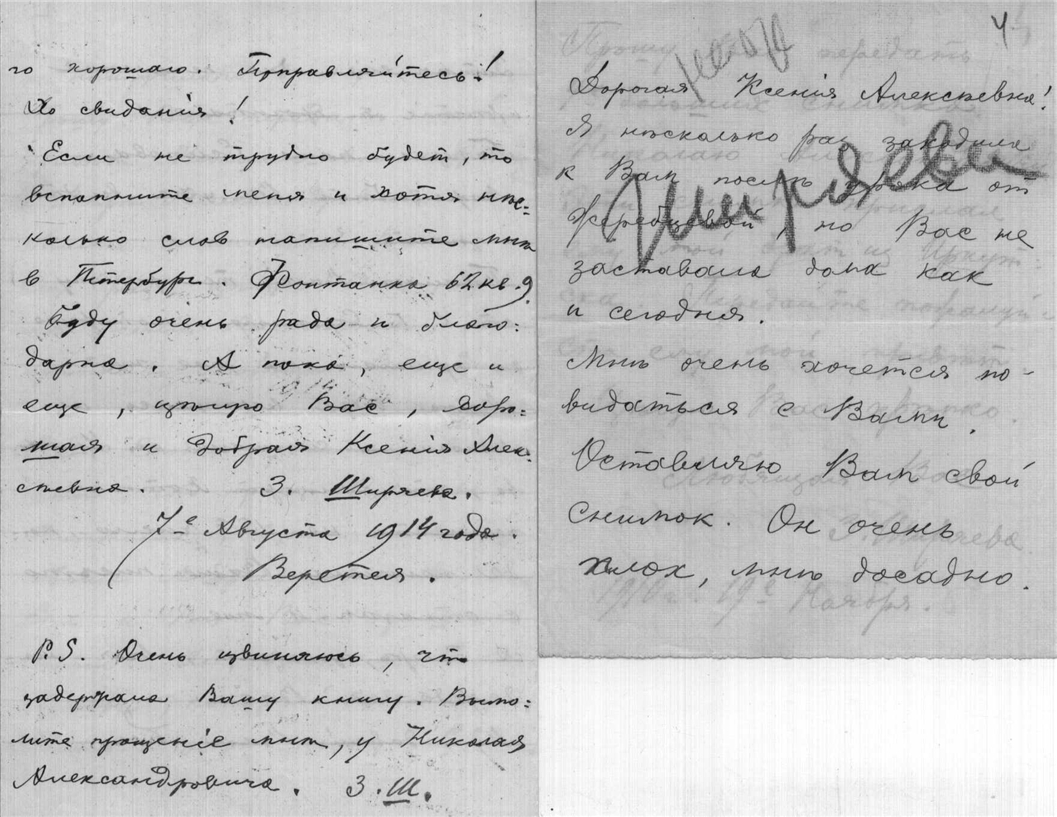 го хорошаго. Поправляйтесь!
До свиданія!
Если не трудно будет, то
вспомните меня и хотя нѣс-
колько слов напишите мнѣ
в Петербург. Фонтанка 62 кв. 9.
Буду очень рада и благо-
дарна. А пока, еще и
еще, цѣлую Вас, доро-
гая и добрая Ксенія Алек-
сѣевна. З. Ширяева.
7-е Августа 1914 года.
Веретея.
P.S. Очень извиняюсь, что
задержала Вашу книгу. Вымо-
лите прощеніе мнѣ, у Николая
Александровича. З. Ш.
4
Дорогая Ксенія Алексѣевна!
Я нѣсколько раз заходила
к Вам послѣ урока от
Жеребцовой, но Вас не
заставала дома как
и сегодня.
Мнѣ очень хочется по-
видаться с Вами.
Оставляю Вам свой
снимок. Он очень
плох, мнѣ досадно.
Ширяева